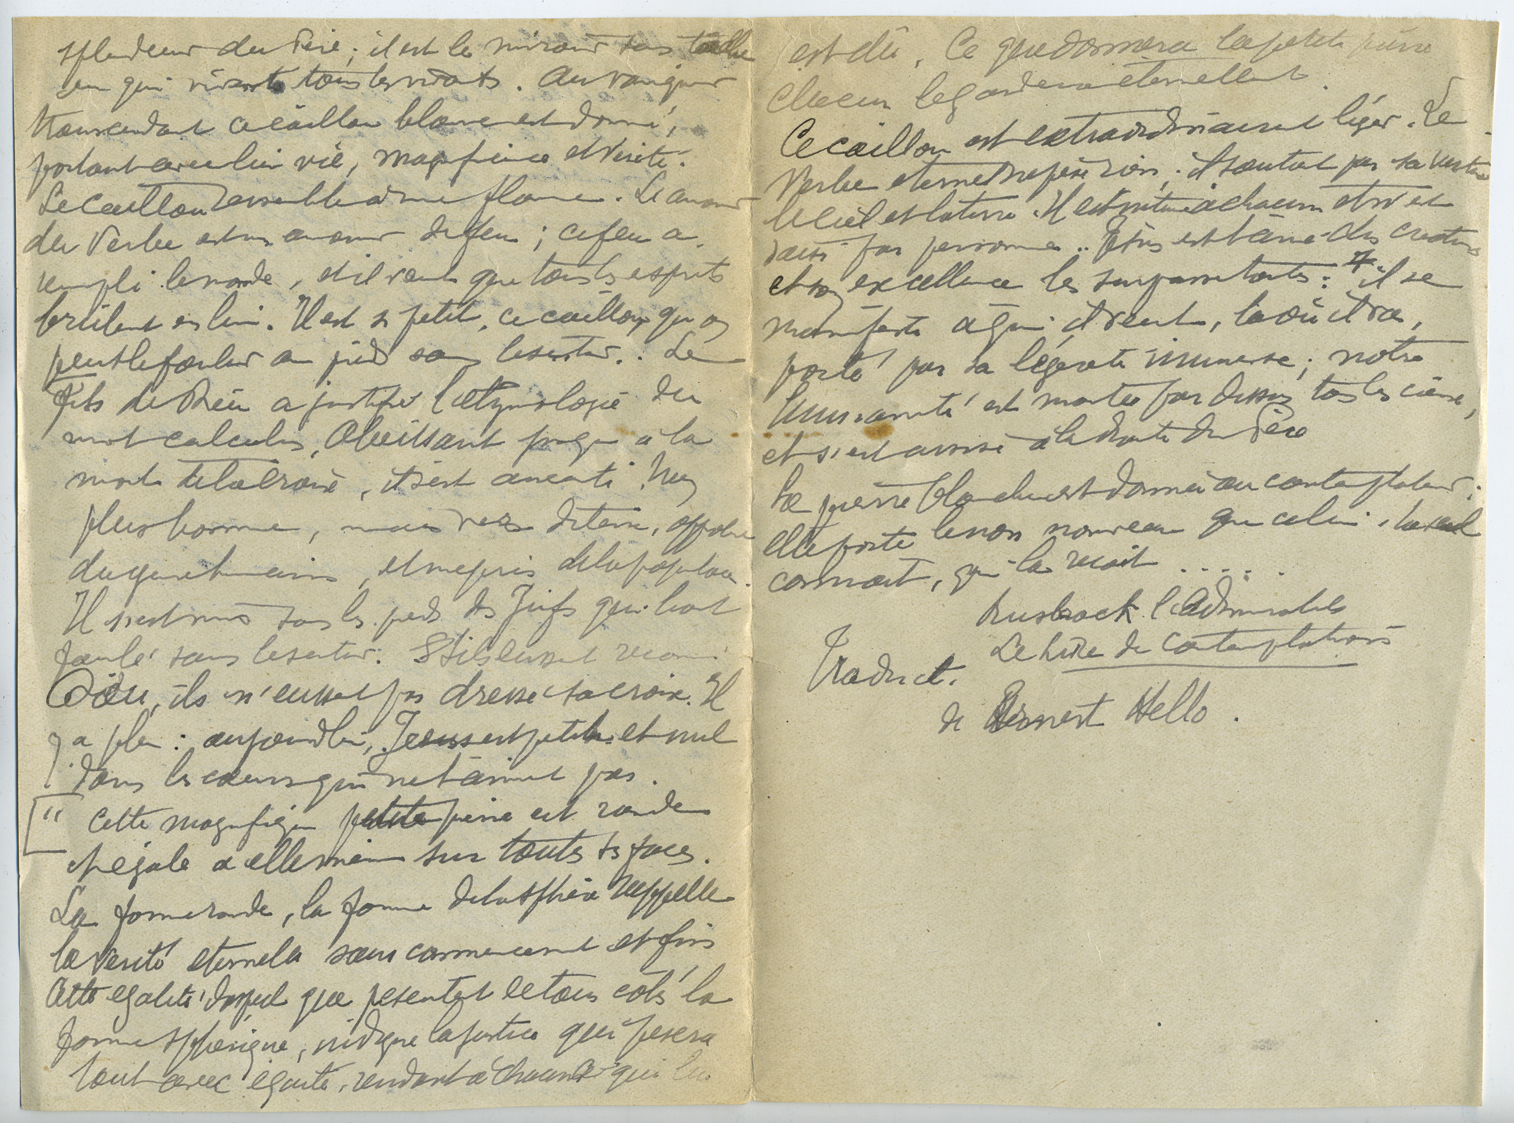 splendeur du Père ; il est le miroir sans tache
en qui vivent tous les vivants. Au vainqueur
transcendant ce caillou blanc est donné,
portant avec lui vie, magnificence et vérité.
Ce caillou ressemble à une flamme. Le amour
du Verbe est un amour de feu ; ce feu a
rempli le monde, et il veut que tous les esprits
brûlent en lui. Il est si petit, ce caillou, qu'on
peut le fouler au pied sans le sentir. Le
Fils de Dieu a justifié l'étymologie du
mot calculus. Obéissant jusqu'à la
mort de la croix, il s'est anéanti. Non
plus homme, mais ver de terre, opprobre
du genre humain, et mépris de la populace.
Il s'est mis sous les pieds des Juifs qui l'ont
foulé sans le sentir. S'ils eussent reconnu
Dieu, ils n'eussent pas dressé sa croix. Il
y a plus : aujourd'hui, Jésus est petit et nul
dans les cœurs qui ne l'aiment pas.
[" Cette magnifique petite pierre est ronde
et égale à elle-même sur toutes ses faces.
La forme ronde, la forme de la sphère rappelle
la vérité éternelle sans commencement et fin
Cette égalité d'aspect que présente de tous côtés la
forme sphérique, indique la justice qui pèsera
tout avec égalité, rendant à chacun ce qui lui
est dû. Ce que donnera la petite pierre
chacun le gardera éternellement.
Ce caillou est extraordinairement léger. Le
Verbe éternel ne pèse rien ; il soutient par sa vertu
le ciel et la terre. Il est intime à chacun et n'est
saisi par personne.. Jésus est l'aîné des créatures
et son excellence les surpasse toutes : il se
manifeste à qui il veut, là où il va,
porté par sa légèreté immense ; notre
humanité est montée par dessus tous les cieux,
et s'est assise à la droite du Père
La pierre blanche est donnée au contemplateur :
elle porte le nom nouveau que celui-là seul
connaît, qui la reçoit .....
Rusbrock l'Admirable
Le livre de contemplations
Traduct.
de Ernest Hello.